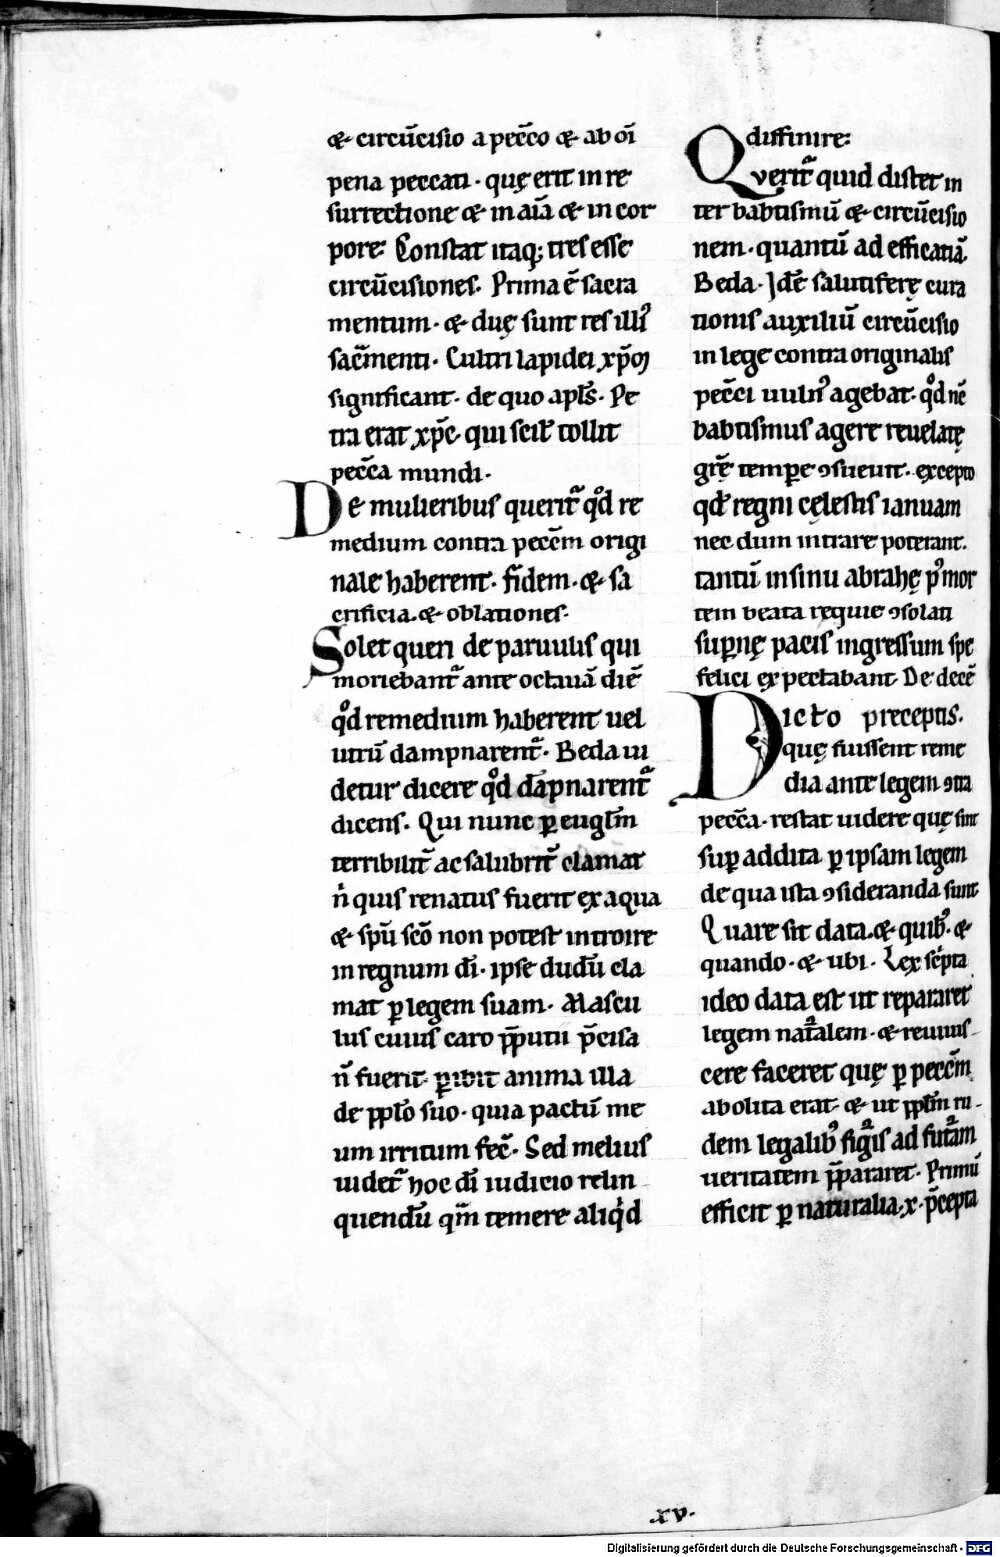 & circu̅cisio a pecc̅o & ab oi̅
pena peccati · quę erit in re
surrectione & in ai̅a & in cor
pore. Constat itaq; tres esse
circu̅cisiones. Prima e̅ sacra
mentum · & duę sunt res illiꝰ
sac̅menti · Cultri lapidei xp̅m
significant · de quo apl̅s · Pe
tra erat xp̅c · qui scil̅ tollit
pecc̅a mundi ·
De mulieribus querit᷑ qͦd re
medium contra pecc̅m origi
nale haberent · fide̅m · & sa
crificia · & oblationes ·
Solet queri de paruulis qui
moriebant᷑ ante octaua̅ die̅
qͦd remedium haberent uel
utru̅ dampnarent᷑ · Beda ui
detur dicere qͦd da̅pnarent᷑
dicens. Qui nunc ꝑ eugl̅m
terribilit᷑ ac salubrit᷑ clamat
n̍ quis renatus fuerit ex aqua
& spu̅ sc̅o non potest introire
in regnum di̅ · ipse dudu̅ cla
mat ꝑ legem suam · Mascu
lus cuius caro p̅putii p̅cisa
n̅ fuerit · ꝑibit anima illa
de pplo̅ suo · quia pactu̅ me
um irritum fec̅ · Sed melius
uidet᷑ hoc di̅ iudicio relin
quendu̅ qm̅ temere aliqͥd
diffinire:
Querit᷑ quid distet in
ter babtismu̅ & circu̅cisio
nem · quantu̅ ad efficatia̅.
Beda · Ide̅ salutiferę cura
tionis auxiliu̅ circu̅cisio
in lege contra originalis
pecc̅i uulnꝰ agebat · qͦd nc̅
babtismus agere reuelatę
gr̅ę tempe̅ ꝯsueuit · excepto
qd̅ regni cęlestis ianuam
nec dum intrare poterant.
tantu̅ in sinu abrahę pꝰ mor
tem beata requie ꝯsolati
suꝑnę pacis ingressum spe
felici expectabant De dece̅
Dicto preceptis.
quę fuissent reme
dia ante legem ꝯtra
pecc̅a · restat uidere quę sint
suꝑ addita ꝑ ipsam legem
de qua ista ꝯsideranda sunt
Quare sit data · & quibꝰ · &
quando · & ubi · Lex sc̍pta
ideo data est ut repararet
legem nat͛alem · & reuiuis-
cere faceret quę ꝑ pecc̅m
abolita erat · & ut ppl̅m ru-
dem legalibꝰ fig͛is ad fut͛am
ueritatem p̅pararet · Primu̅
efficit ꝑ naturalia · x · p̅cepta
xv.
Digitalisierung gefördert durch die Deutsche Forschungsgemeinschaft - DFG